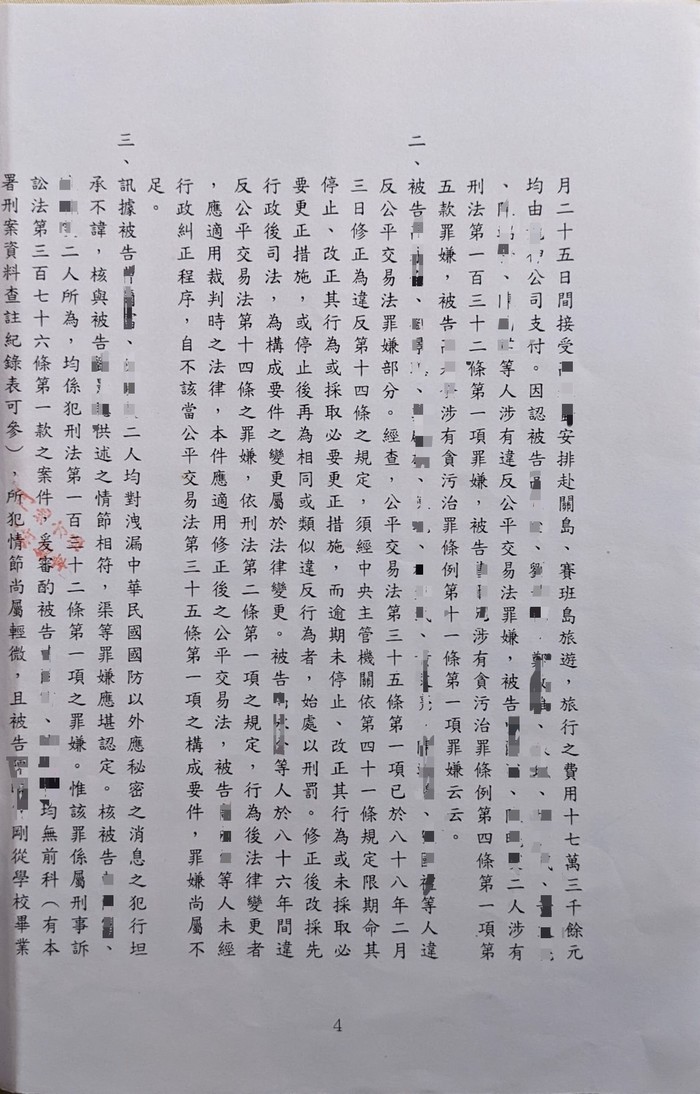 月二十五日間接受安排赴關島、賽班島旅遊，旅行之費用十七萬三千餘元
均由公司支付。因認被告、劉、鄭、、、、
、、等人涉有違反公平交易法罪嫌，被告、二人涉有
刑法第一百三十二條第一項罪嫌，被告涉有貪污治罪條例第四條第一項第
五款罪嫌，被告涉有貪污治罪條例第十一條第一項罪嫌云云。
二、被告、、、、、、、等人違
反公平交易法罪嫌部分。經查，公平交易法第三十五條第一項已於八十八年二月
三日修正為違反第十四條之規定，須經中央主管機關依第四十一條規定限期命其
停止、改正其行為或採取必要更正措施，而逾期未停止、改正其行為或未採取必
要更正措施，或停止後再為相同或類似違反行為者，始處以刑罰。修正後改採先
行政後司法，為構成要件之變更屬於法律變更。被告等人於八十六年間違
反公平交易法第十四條之罪嫌，依刑法第二條第一項之規定，行為後法律變更者
，應適用裁判時之法律，本件應適用修正後之公平交易法，被告等人未經
行政糾正程序，自不該當公平交易法第三十五條第一項之構成要件，罪嫌尚屬不
足。
三、訊據被告、二人均對洩漏中華民國國防以外應秘密之消息之犯行坦
承不諱，核與被告供述之情節相符，渠等罪嫌應堪認定。核被告、
二人所為，均係犯刑法第一百三十二條第一項之罪嫌。惟該罪係屬刑事訴
訟法第三百七十六條第一款之案件，爰審酌被告、均無前科（有本
署刑案資料查註紀錄表可參），所犯情節尚屬輕微，且被告剛從學校畢業
4